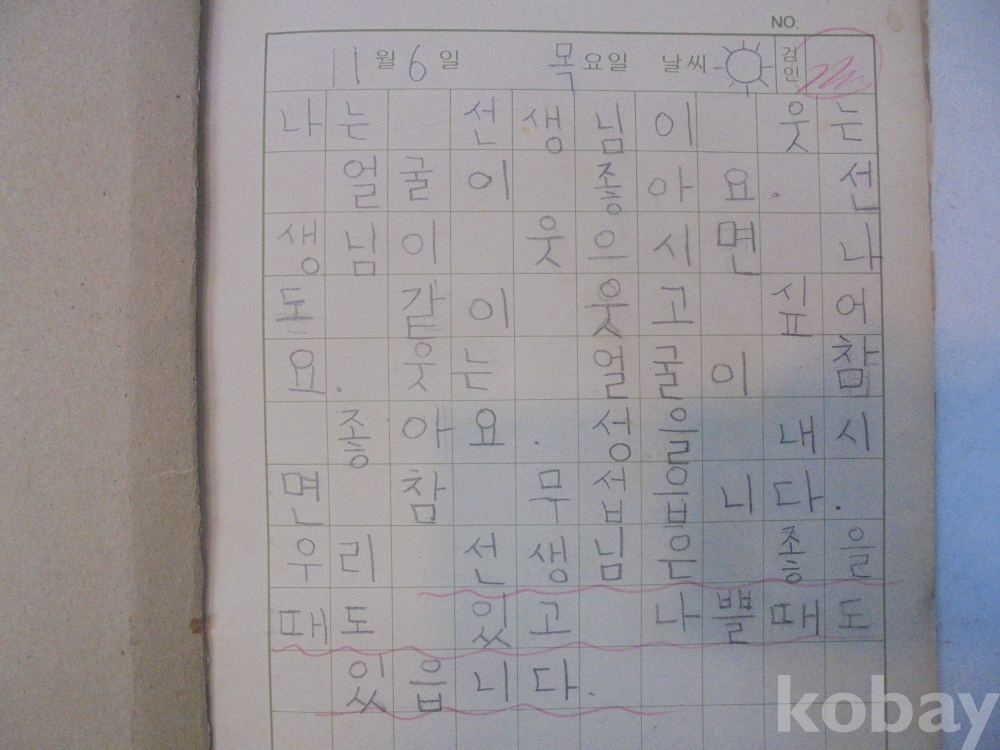 NO.
11월 6일 목요일 날씨 검인
나는 선생님이 웃는
얼굴이 좋아요. 선
생님이 웃으시면 나
도 같이 웃고 싶어
요. 웃는 얼굴이 참
좋아요. 성을 내시
면 참 무섭습니다.
우리 선생님은 좋을
때도 있고 나쁠때도
있읍니다.
kobay